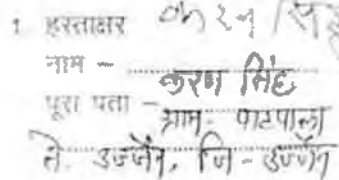 1 हस्ताक्षर करन सिंह
नाम - करण सिंह
पूरा पता - ग्राम- पाटपाला
ते. उज्जैन, जि - उज्जैन